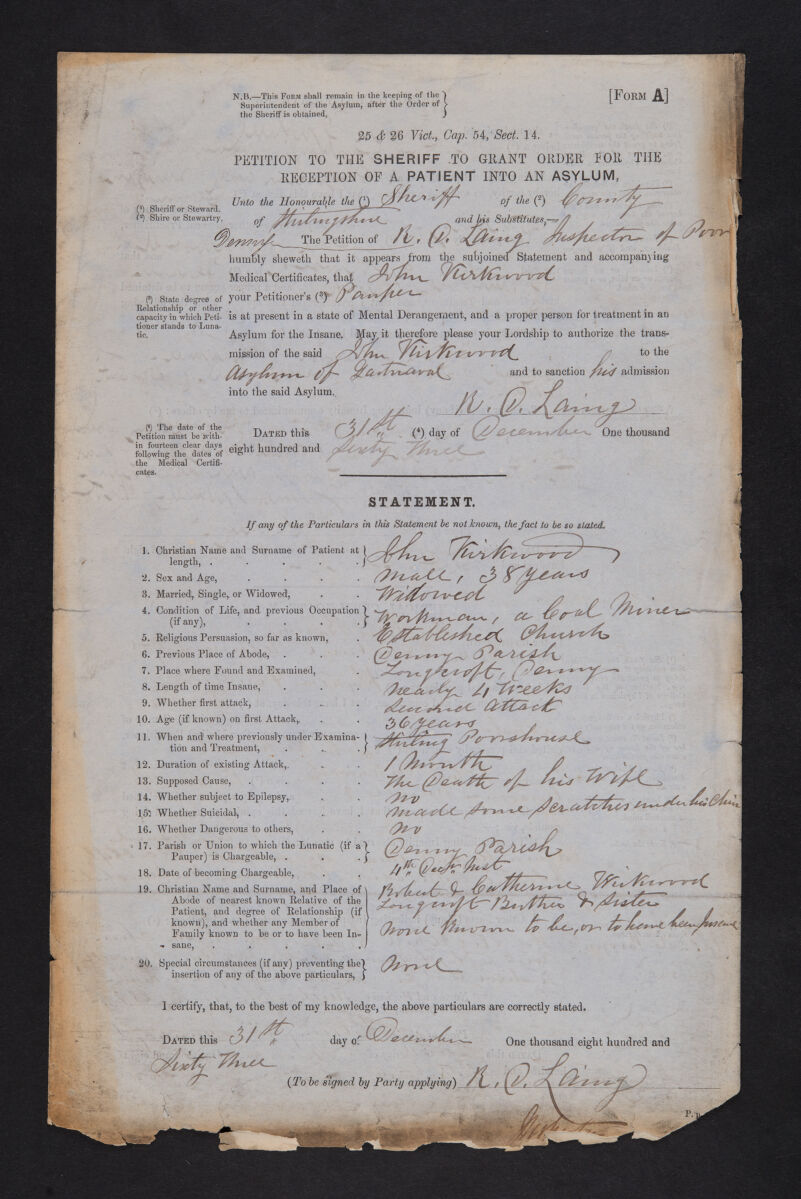 N.B.—This Form shall remain in the keeping of the
Superintendent of the Asylum, after the Order of
the Sheriff is obtained,
[Form A]
25 & 26 Vict., Cap. 54, Sect. 14.
PETITION TO THE SHERIFF TO GRANT ORDER FOR THE
RECEPTION OF A PATIENT INTO AN ASYLUM,
(¹) Sheriff or Steward.
(²) Shire or Stewartry.
Unto the Honourable the (¹) Sheriff of the (²) County
of Stirlingshire and his Substitutes,—
The Petition of R. D. Laing Inspector of Poor
Denny
humbly sheweth that it appears from the subjoined Statement and accompanying
Medical Certificates, that John Kirkwood
(³) State degree of
Relationship or other
capacity in which Peti-
tioner stands to Luna-
tic.
your Petitioner's (³) Pauper
is at present in a state of Mental Derangement, and a proper person for treatment in an
Asylum for the Insane. May it therefore please your Lordship to authorize the trans-
mission of the said John Kirkwood to the
Asylum of Gartnavel and to sanction his admission
into the said Asylum.
R. D. Laing
(⁴) The date of the
Petition must be with-
in fourteen clear days
following the dates of
the Medical Certifi-
cates.
Dated this 31st (⁴) day of December One thousand
eight hundred and Sixty Three
STATEMENT.
If any of the Particulars in this Statement be not known, the fact to be so stated.
1. Christian Name and Surname of Patient at
length, . . . . . John Kirkwood
2. Sex and Age, . . . . Male, 38 years
3. Married, Single, or Widowed, . . Widowed
4. Condition of Life, and previous Occupation
(if any), . . . . Workman, a Coal Miner
5. Religious Persuasion, so far as known, . Established Church
6. Previous Place of Abode, . . . Denny Parish
7. Place where Found and Examined, . Longcroft, Denny
8. Length of time Insane, . . . nearly 4 weeks
9. Whether first attack, . . . Second Attack
10. Age (if known) on first Attack, . . 36 years
11. When and where previously under Examina-
tion and Treatment, . . . Stirling Poorshouse
12. Duration of existing Attack, . . 1 Month
13. Supposed Cause, . . . . The Death of his Wife
14. Whether subject to Epilepsy, . . no
15. Whether Suicidal, . . . . made some scratches under his Chin
16. Whether Dangerous to others, . . no
17. Parish or Union to which the Lunatic (if a
Pauper) is Chargeable, . . . Denny Parish
18. Date of becoming Chargeable, . . 4th Decr. Inst
19. Christian Name and Surname, and Place of
Abode of nearest known Relative of the
Patient, and degree of Relationship (if
known), and whether any Member of
Family known to be or to have been In-
sane, . . . . . .
Robert & Catherine Kirkwood
Longcroft Brother & Sister
none known to be, or to have been Insane
20. Special circumstances (if any) preventing the
insertion of any of the above particulars, None
I certify, that, to the best of my knowledge, the above particulars are correctly stated.
Dated this 31st day of December One thousand eight hundred and
Sixty Three
(To be signed by Party applying) R. D. Laing